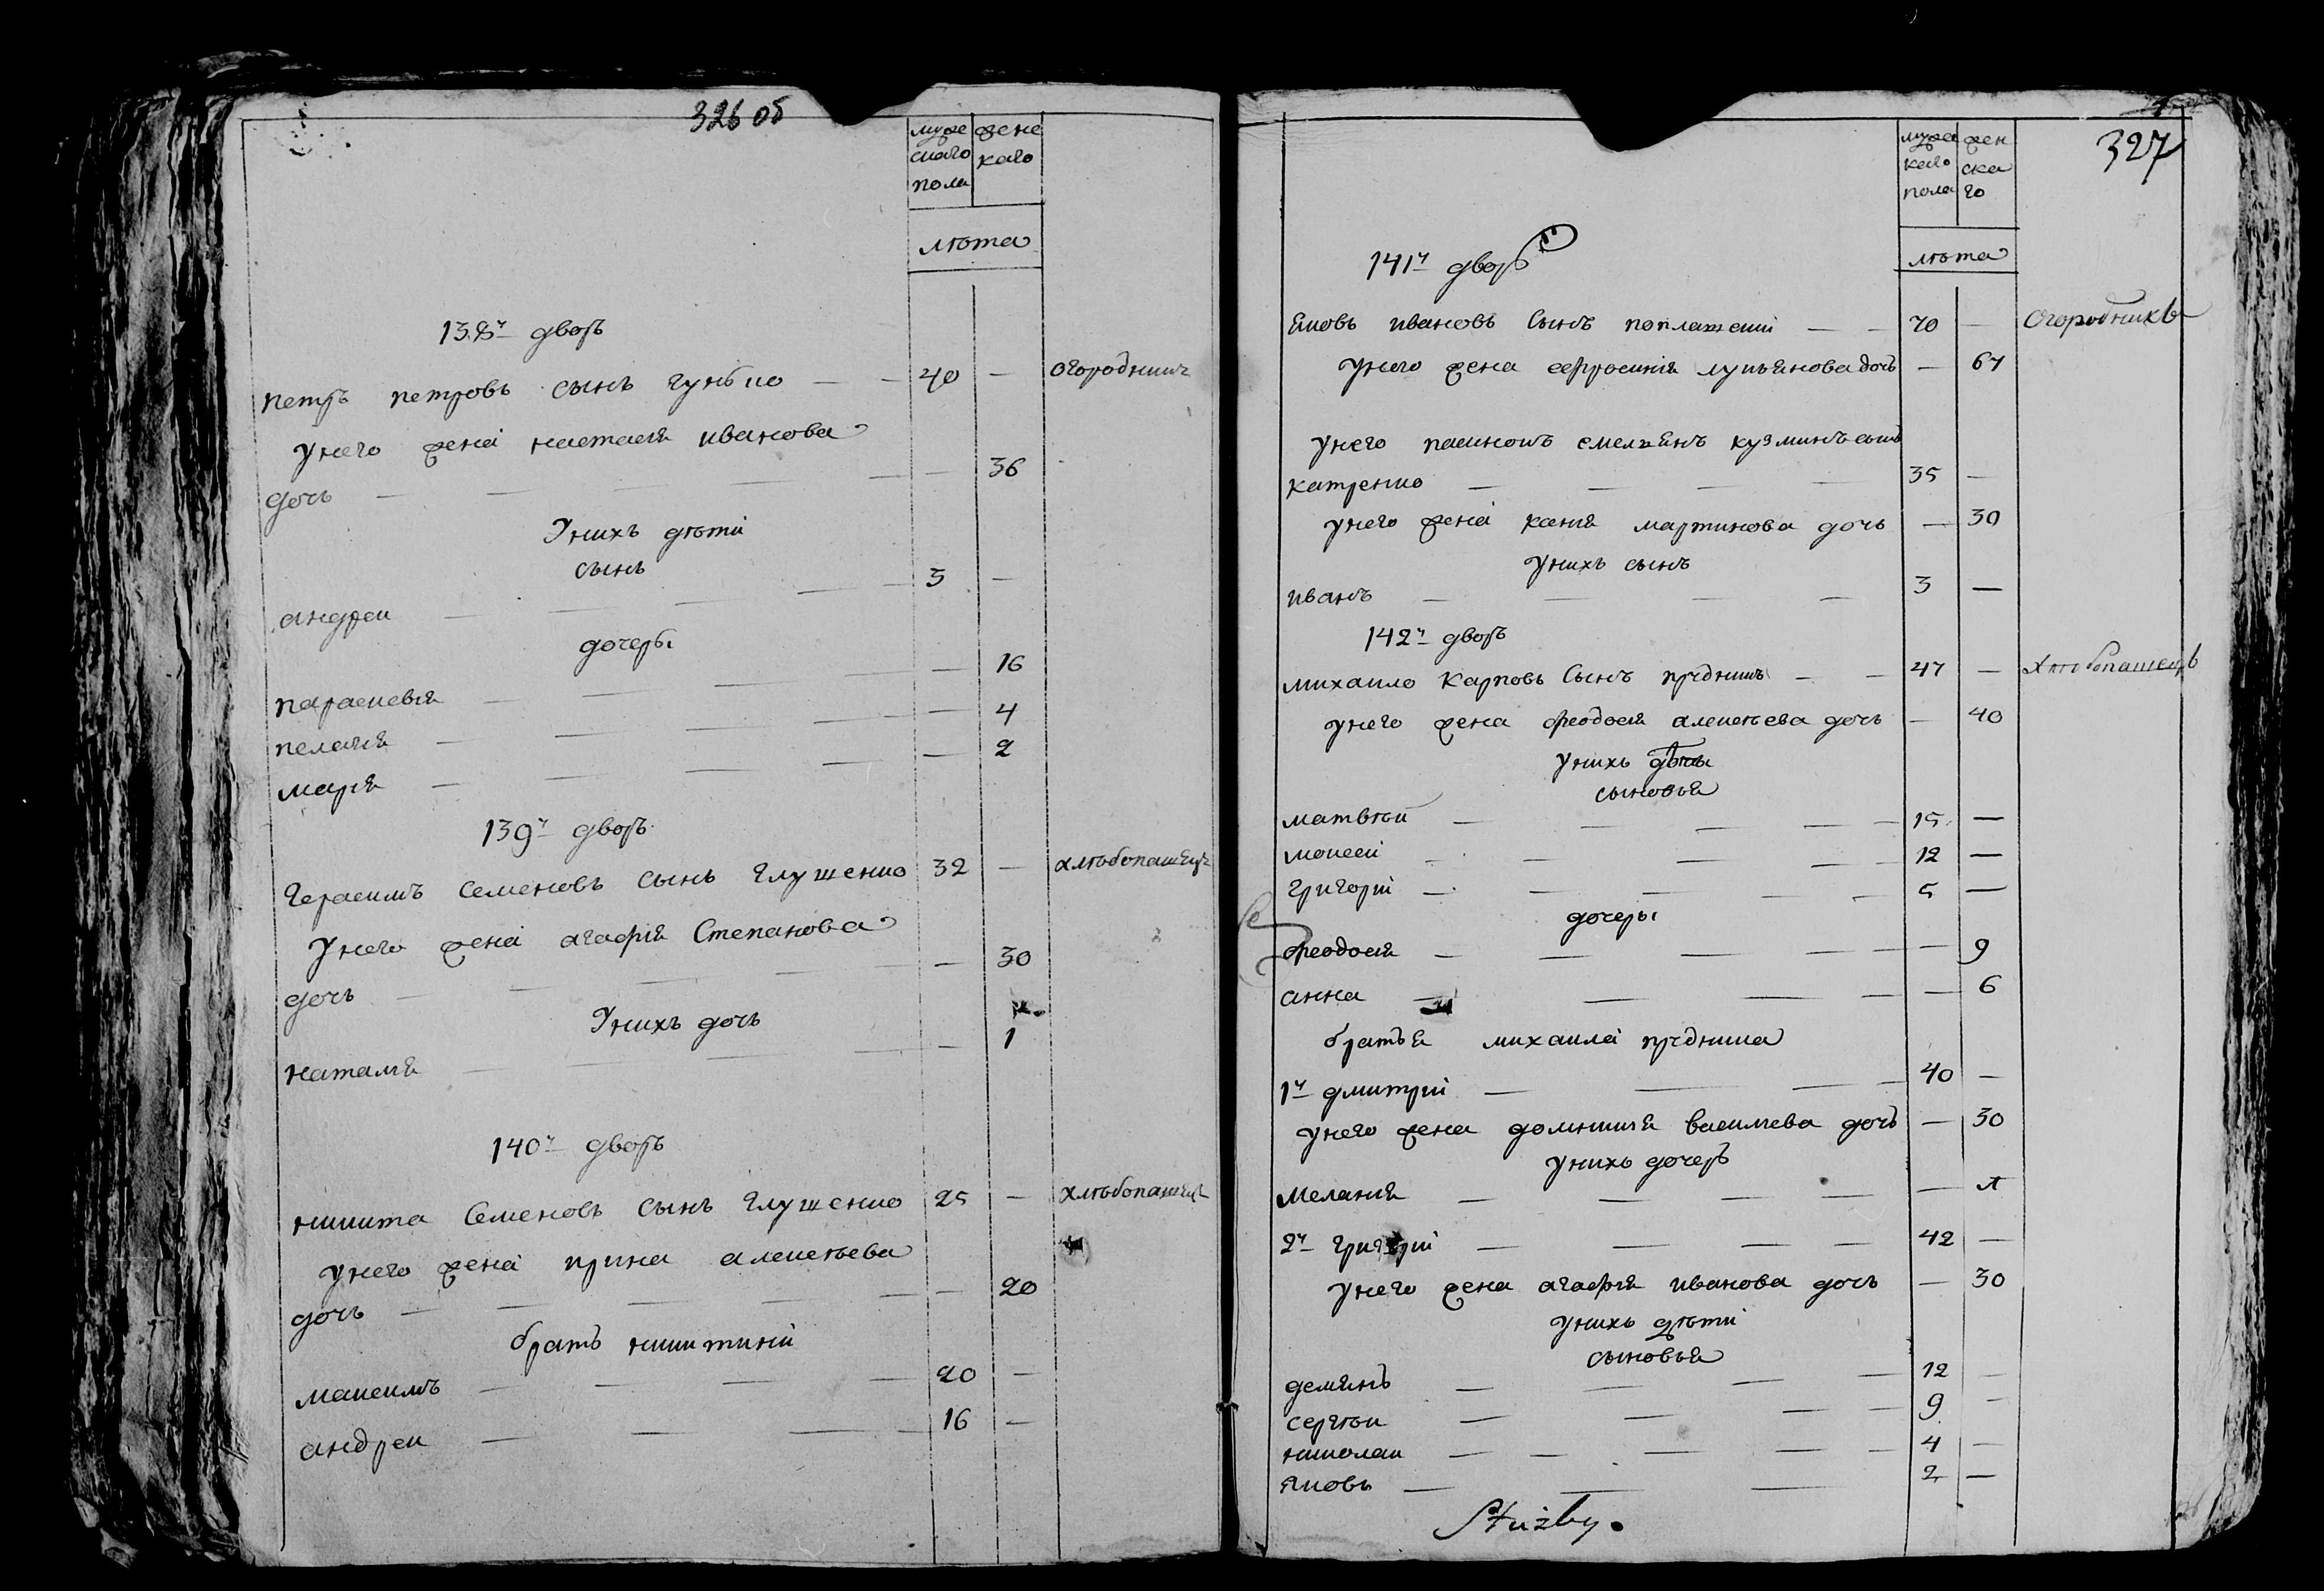 326 об
мужескаго пола женскаго
лѣта
138й дворъ
петръ петровъ сынъ гунько — — 40 — огородникъ
унего жена настасія иванова
дочь — — — — — — 36
Унихъ дѣти
сынъ
андреи — — — — — 3 —
дочеры
параскевія — — — — — 16
пелагія — — — — — 4
марія — — — — — 2
139й дворъ
Герасимъ Семеновъ сынъ глущенко 32 — хлѣбопашецъ
Унего жена агафія Степанова
дочь — — — — — 30
Унихъ дочь
наталія — — — — — 1
140й дворъ
никита Семеновъ сынъ глущенко 25 — хлѣбопашецъ
унего жена ирина алексѣева
дочь — — — — — — 20
братъ никитинъ
максимъ — — — — 20 —
андреи — — — — 16 —
327
мужескаго пола женскаго
лѣта
141й дворъ
Яковъ ивановъ Сынъ — — 70 — Огородникъ
Унего жена ефросинія лукьянова дочь — 67
унего пасинокъ емельянъ кузминъ сынъ
катренко — — — — 35 —
унего жена ксенія мартинова дочь — 30
унихъ сынъ
иванъ — — — — 3 —
142й дворъ
михаило Карповъ Сынъ прудникъ — — 47 — Хлѣбопашецъ
унего жена феодосія алексѣева дочь — 40
унихъ дѣты
сыновья
матвѣи — — — — — 15 —
моисеи — — — — — 12 —
григорій — — — — — 5 —
дочеры
феодосія — — — — — — 9
анна — — — — — 6
братья михаила прудника
1й дмитрій — — — — 40 —
унего жена домникія василіева дочь — 30
унихъ дочеръ
Меланія — — — — —
2й григорій — — — — 42 —
унего жена агафія иванова дочь — 30
унихъ дѣти
сыновья
демянъ — — — — 12 —
сергѣи — — — — 9 —
николаи — — — — — 4 —
Яковъ — — — 2 —